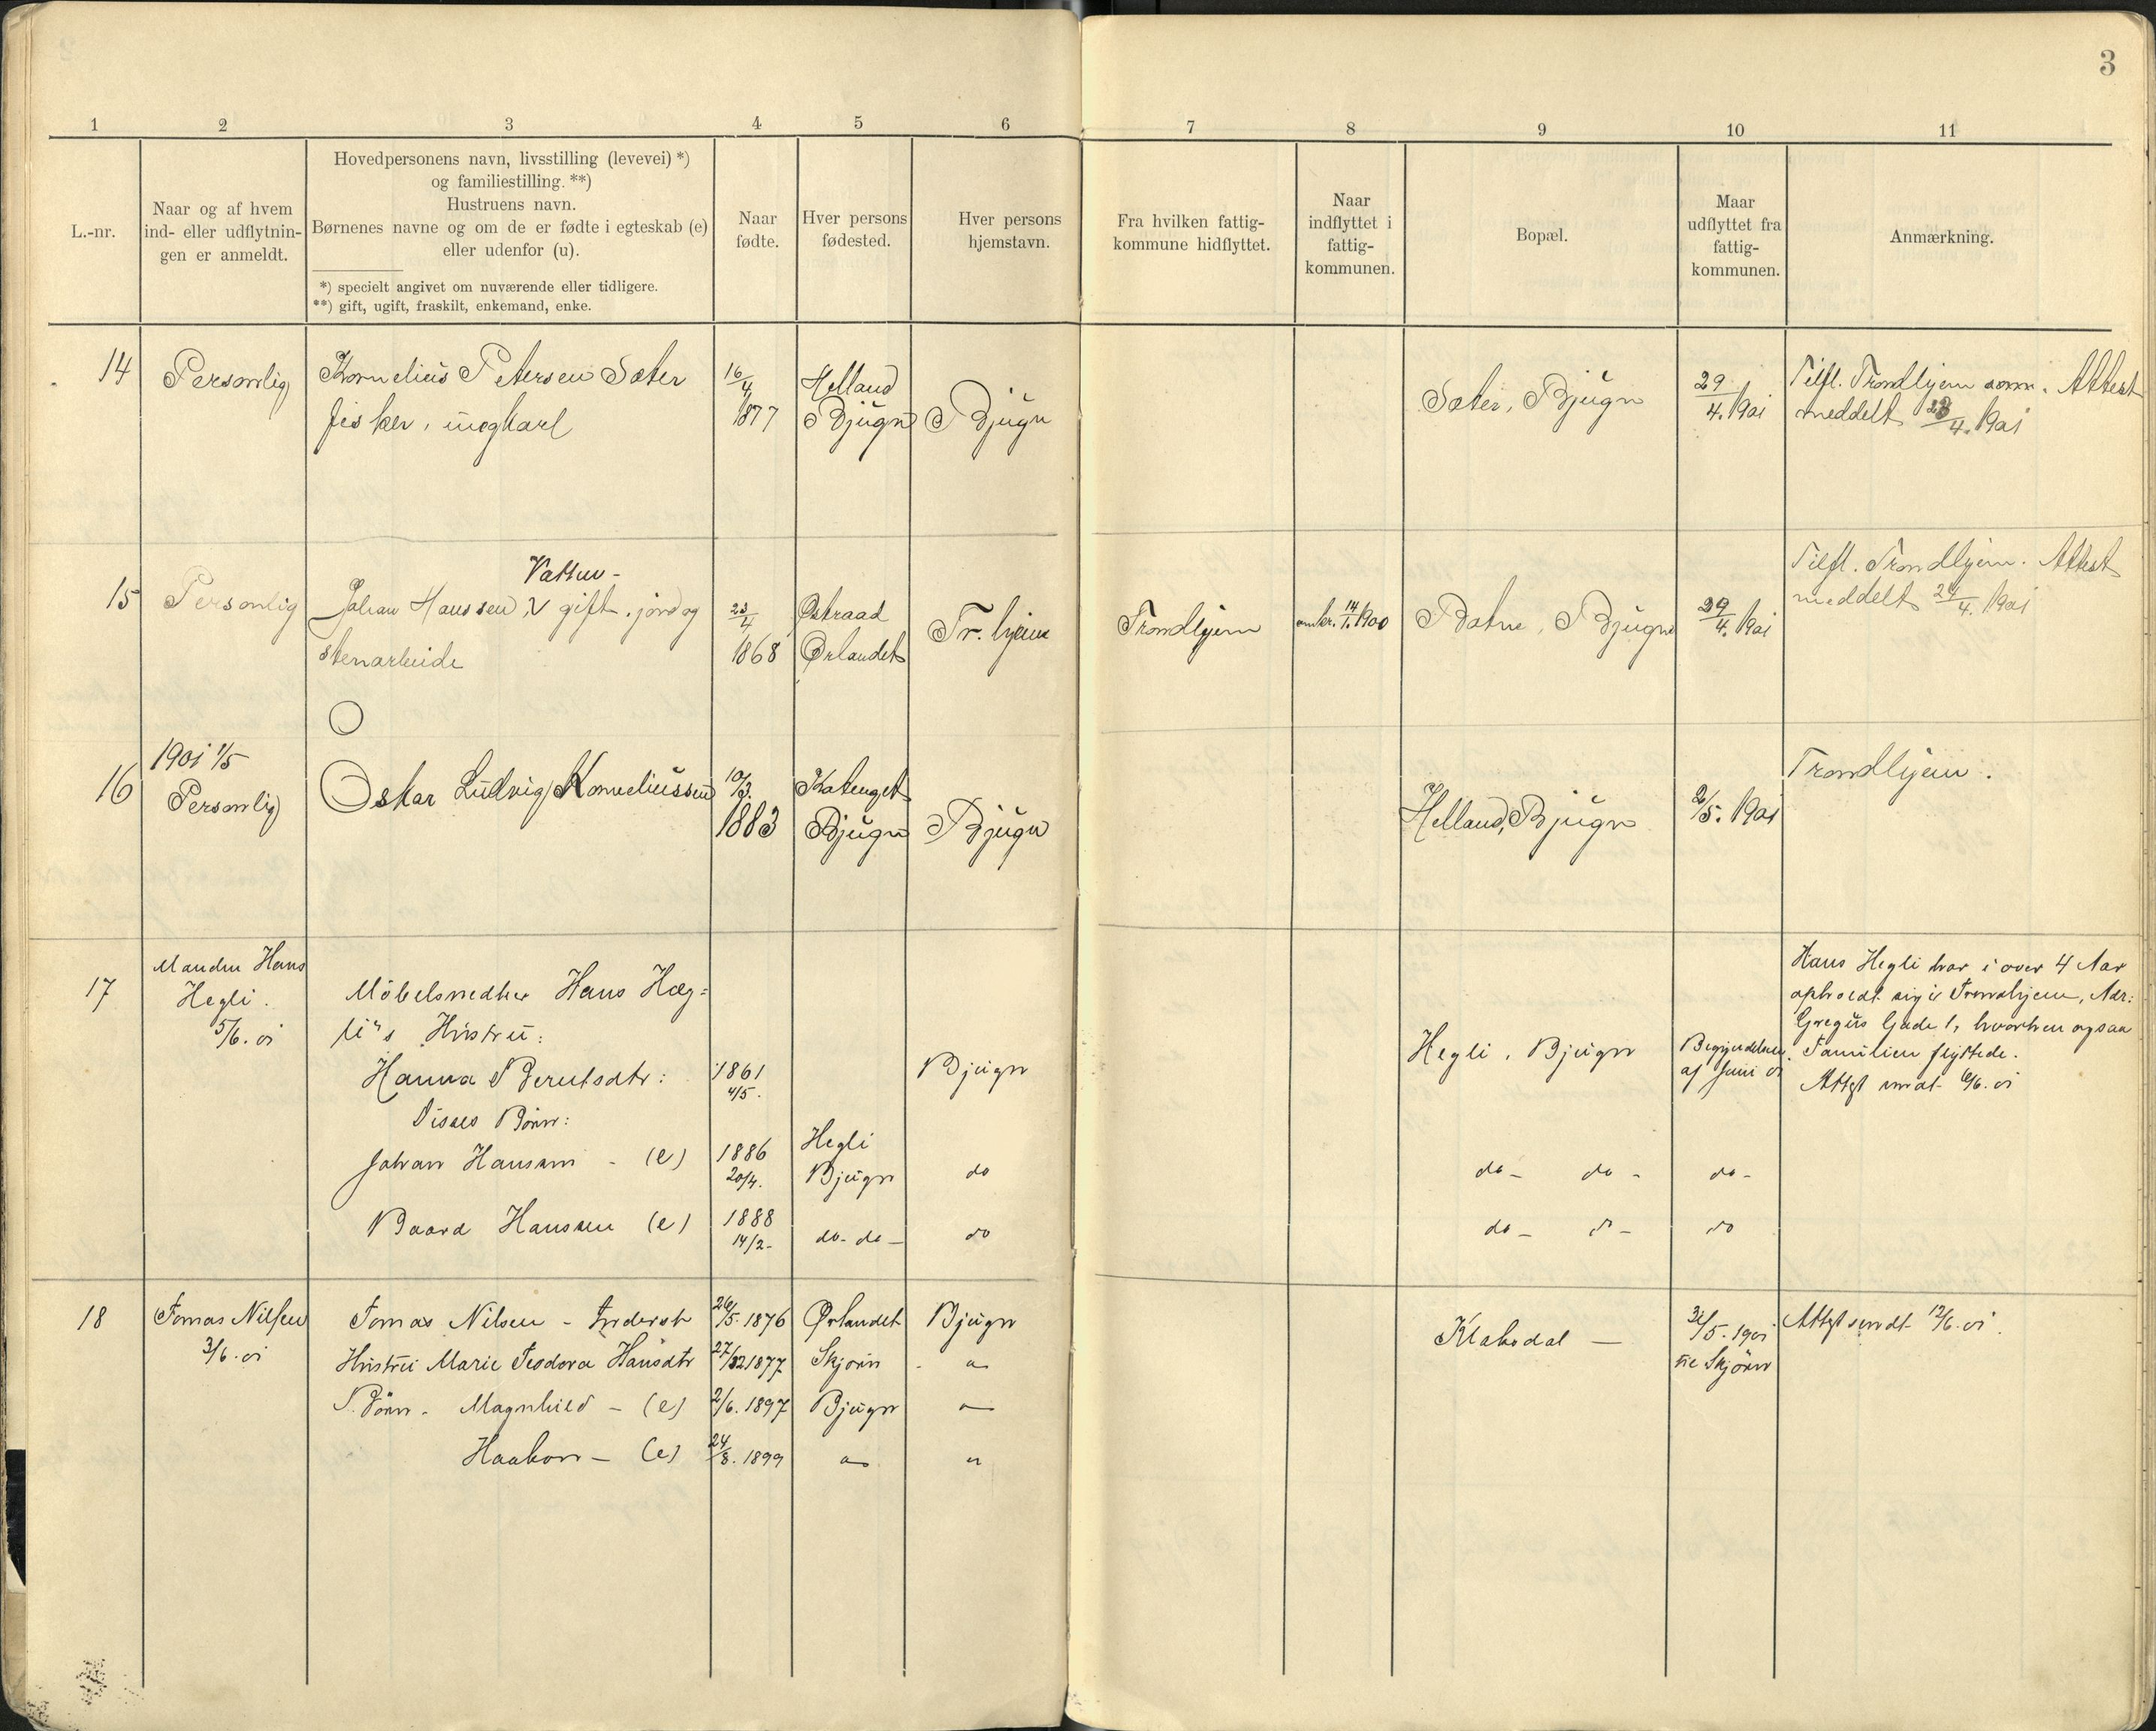 3
1 2 3 4 5 6 7 8 9 10 11
L.-nr.
Naar og af hvem
ind- eller udflytnin-
gen er anmeldt.
Hovedpersonens navn, livsstilling (levevei) *)
og familiestilling. **)
Hustruens navn.
Børnenes navne og om de er fødte i egteskab (e)
eller udenfor (u).
*) specielt angivet om nuværende eller tidligere.
**) gift, ugift, fraskilt, enkemand, enke.
Naar
fødte.
Hver persons
fødested.
Hver persons
hjemstavn.
Fra hvilken fattig-
kommune hidflyttet.
Naar
indflyttet i
fattig-
kommunen.
Bopæl.
Maar
udflyttet fra
fattig-
kommunen.
Anmærkning.
14
Personlig
Kornelius Petersen Sæter
fisker, ungkarl
16/4
1877
Helland
Bjugn
Bjugn
Sæter, Bjugn
29/4. 1901
Tilfl. Trondhjem Attest
meddelt 1901
15
Personlig
Vatten-
Johan Hanssen, V gift. jord og
stenarbeide
23/4
1868
Østraad
Ørlandet
Tr. hjem
Trondhjem
omkr. 14/1. 1900
Botne, Bjugn
29/4. 1901
Tilfl. Trondhjem. Attest
meddelt 24/4. 1901
16
1901 1/5
Personlig
Oskar Ludvig Korneliussen
10/3.
1883
Bjugn
Bjugn
Helland, Bjugn
2/5. 1901
Trondhjem.
17
Manden Hans
Hegli.
5/6. 01
Möbelsnedker Hans Hæg=
li's Hustru:
Hanna Berntsdtr:
1861
4/5.
Bjugn
Hegli, Bjugn
Begyndelsen
af Juni 01
Hans Hegli har i over 4 Aar
opholdt sig i Trondhjem, Adr:
Gregus Gade 1, hvorhen ogsaa
Familien flyttede.
Attst 6/6. 01
Disses Börn:
Johan Hansen - (e)
1886
20/4.
Hegli
Bjugn
do
do - do -
do -
Baard Hansen (e)
1888
14/2-
do- do -
do
do - do -
do
18
Tomas Nilsen
3/6. 01
Tomas Nilsen - Inderst
26/5. 1876
Ørlandet
Bjugn
Klaksdal -
31/5. 1901
til Skjörn
Attst sendt 12/6. 01.
Hustru Marie Teodora Hansdtr
27/12 1877
Skjörn
"
Börn - Magnhild - (e)
2/6. 1897
Bjugn
"
Haakon - (e)
24/8. 1899
"
"